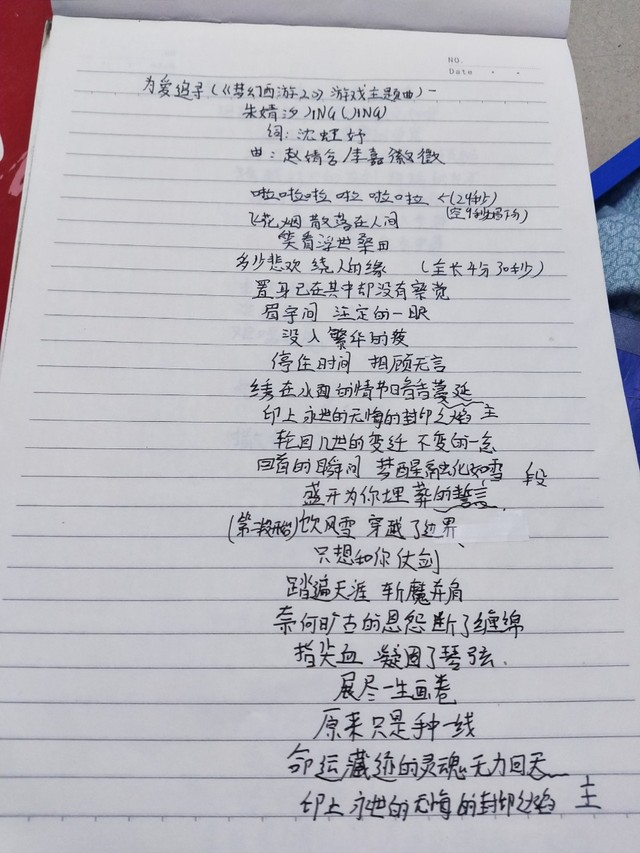 NO.
Date
为爱追寻(《梦幻西游2》游戏主题曲)-
朱婧汐JING(JING)
词:沈虹妤
曲:赵婧含/李嘉徽徵
啦啦啦 啦 啦啦 ←(24秒)
(空9秒唱下方)
飞花烟 散落在人间
笑看浮世桑田
多少悲欢 绕人的缘 (全长4分30秒)
置身已在其中却没有察觉
眉宇间 注定的一眼
没入繁华的夜
停住时间 相顾无言
绣在水面的情节暗香蔓延
印上永世的无悔的封印之焰 主
轮回几世的变迁 不变的一念
回首的瞬间 梦醒融化如雪 段
盛开为你埋葬的誓言
饮风雪 穿越了边界、
只想和你仗剑
踏遍天涯 斩魔弃屑
奈何旷古的恩怨断了缠绵
指尖血 凝固了琴弦.
展尽一生画卷
原来只是种一线
命运藏迹的灵魂无力回天
印上永世的无悔的封印之焰 主